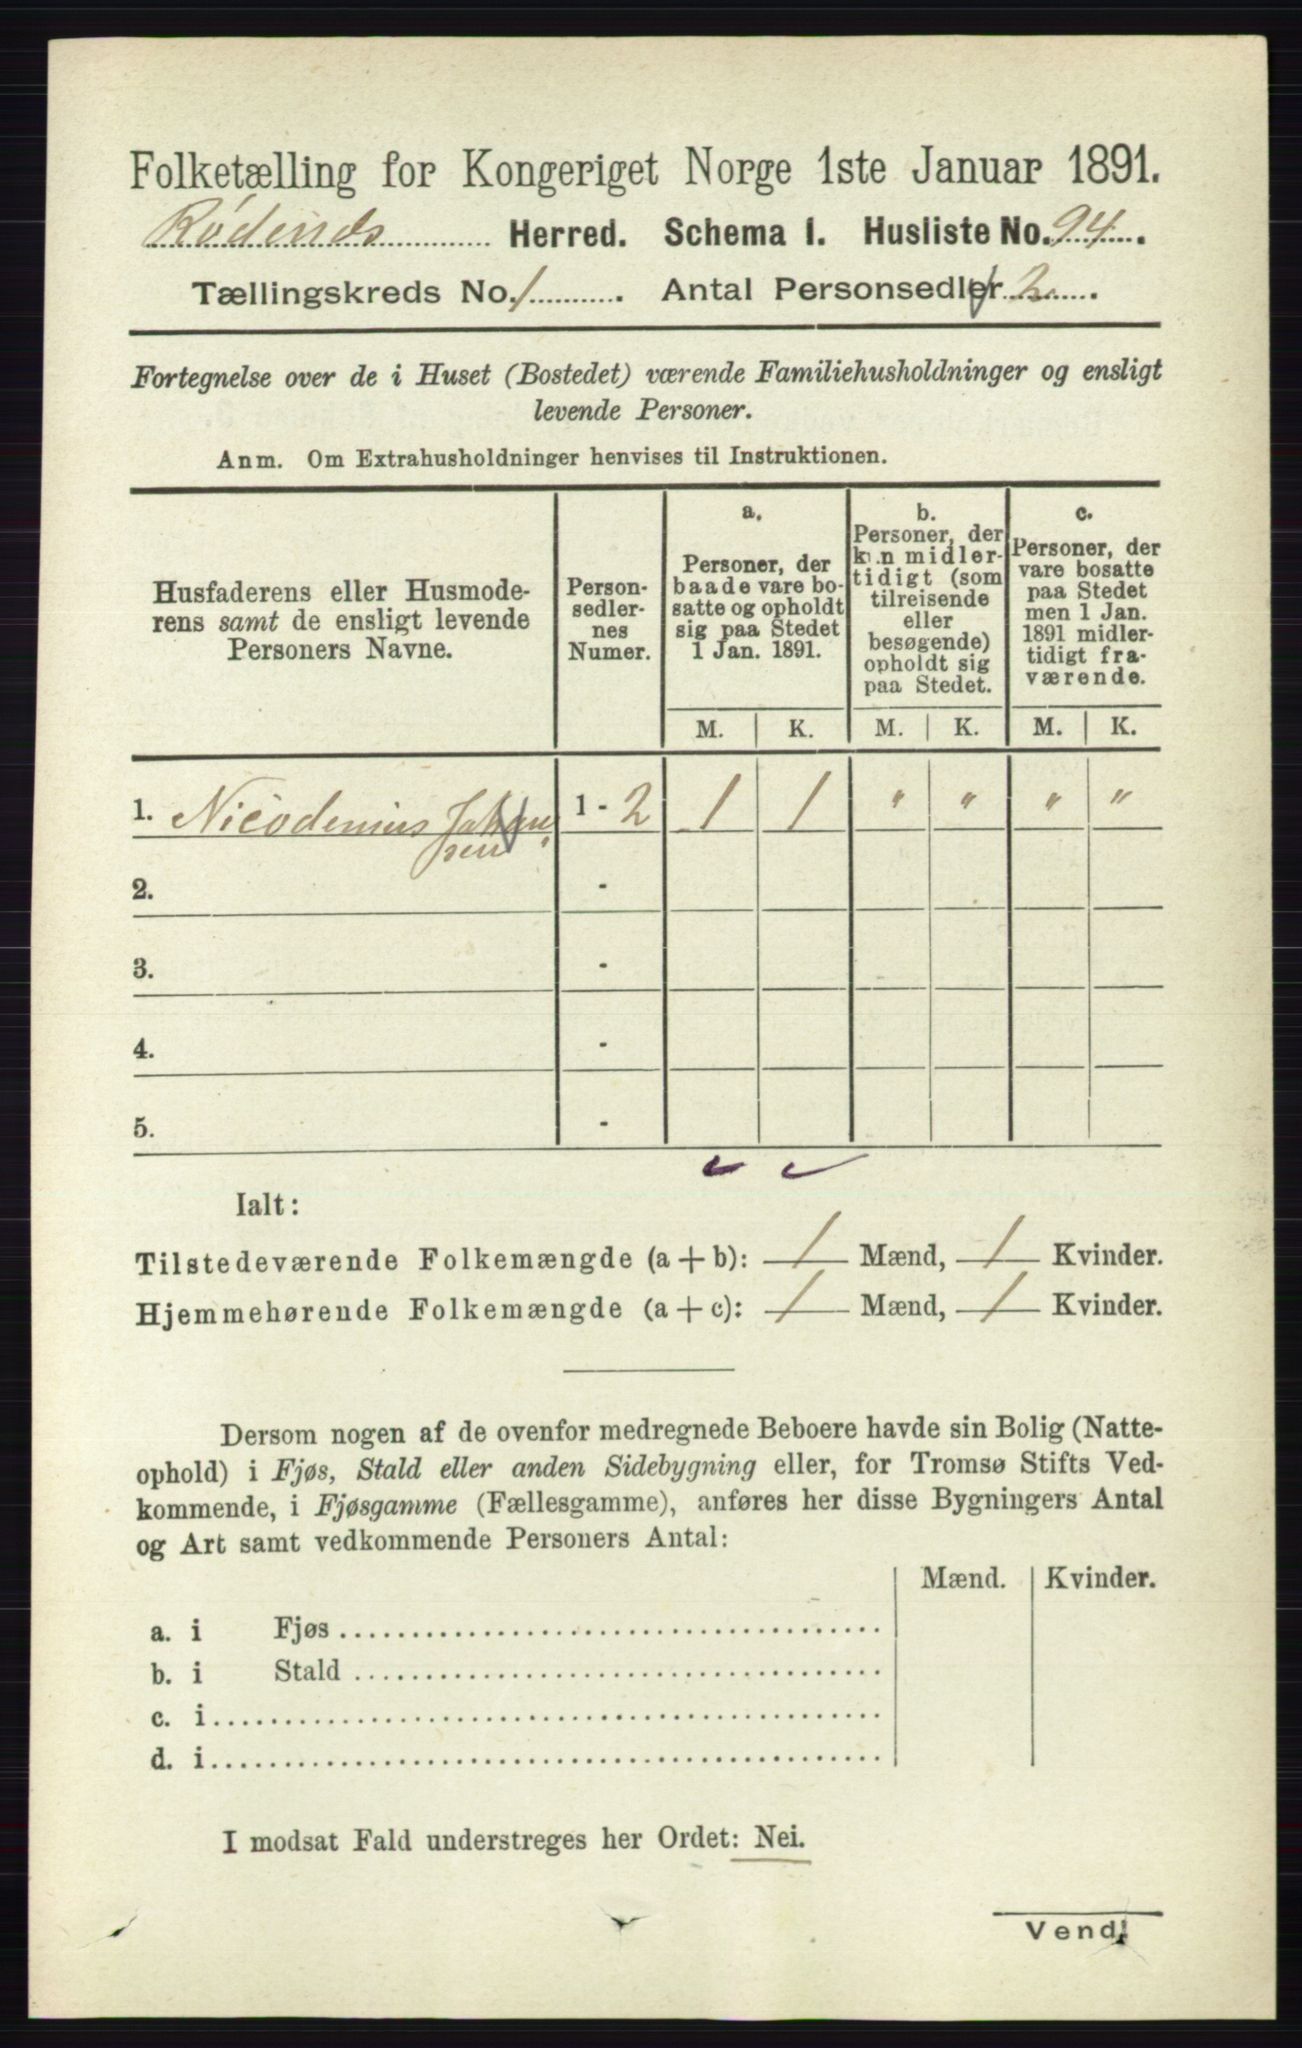 Folketælling for Kongeriget Norge 1ste Januar 1891.
Rødenæs Herred. Schema 1. Husliste No. 94.
Tællingskreds No. 1. Antal Personsedler 2.
Fortegnelse over de i Huset (Bostedet) værende Familiehusholdninger og ensligt
levende Personer.
Anm. Om Extrahusholdninger henvises til Instruktionen.
Husfaderens eller Husmode-
rens samt de ensligt levende
Personers Navne.
Person-
sedler-
nes
Numer.
a.
Personer, der
baade vare bo-
satte og opholdt
sig paa Stedet
1 Jan. 1891.
b.
Personer, der
kun midler-
tidigt (som
tilreisende
eller
besøgende)
opholdt sig
paa Stedet.
c.
Personer, der
vare bosatte
paa Stedet
men 1 Jan.
1891 midler-
tidigt fra-
værende.
M. K. M. K. M. K.
1. Nicodemus Johan 1 - 2 1 1 " " " "
sen
2. -
3. -
4. -
5. -
Ialt:
Tilstedeværende Folkemængde (a + b): 1 Mænd, 1 Kvinder.
Hjemmehørende Folkemængde (a + c): 1 Mænd, 1 Kvinder.
Dersom nogen af de ovenfor medregnede Beboere havde sin Bolig (Natte-
ophold) i Fjøs, Stald eller anden Sidebygning eller, for Tromsø Stifts Ved-
kommende, i Fjøsgamme (Fællesgamme), anføres her disse Bygningers Antal
og Art samt vedkommende Personers Antal:
Mænd. Kvinder.
a. i Fjøs
b. i Stald
c. i
d. i
I modsat Fald understreges her Ordet: Nei.
Vend!